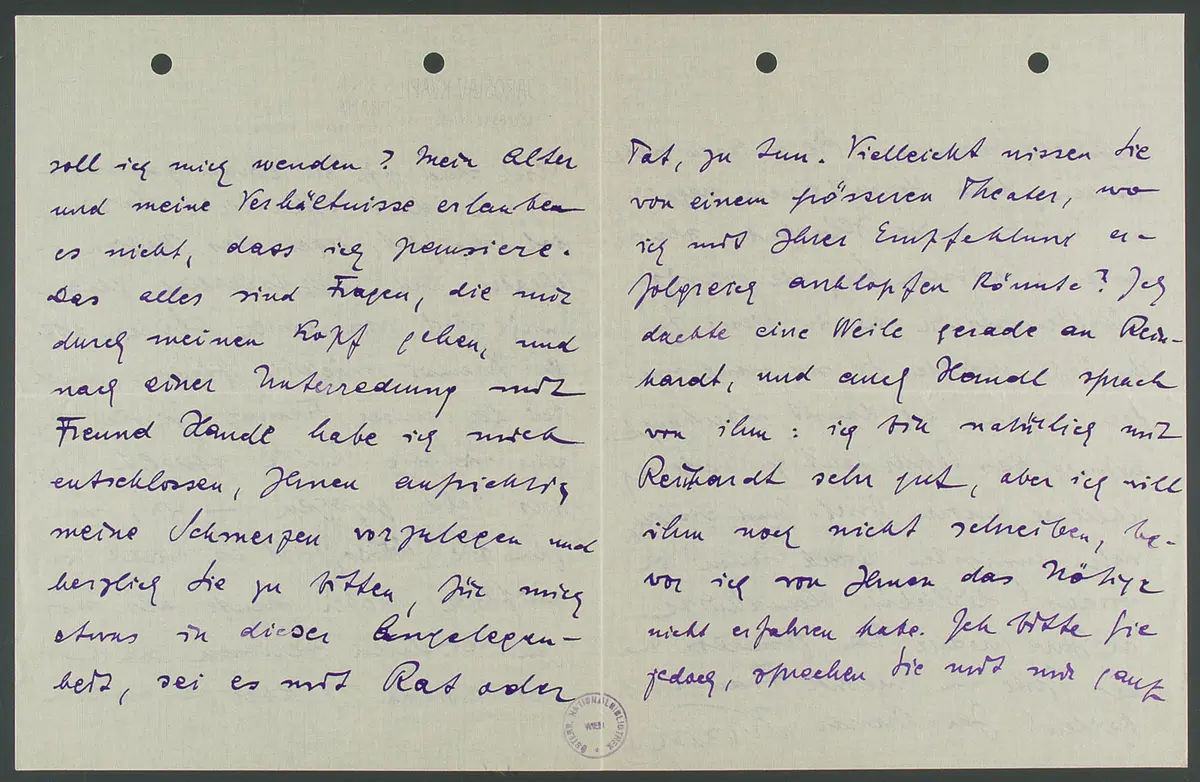 soll ich mich wenden? Mein Alter
und meine Verhältnisse erlauben
es nicht, dass ich pensiere.
Das alles sind Fragen, die mir
durch meinen Kopf gehen, und
nach einer Unterredung mit
Freund Handl habe ich mich
entschlossen, Ihnen aufrichtig
meine Schmerzen vorzulegen und
herzlich Sie zu bitten, für mich
etwas in dieser Angelegen-
heit, sei es mit Rat oder
Tat, zu tun. Vielleicht wissen Sie
von einem grösseren Theater, wo
ich mit Ihrer Empfehlung er-
folgreich anklopfen könnte? Ich
dachte eine Weile gerade an Rein-
hardt, und auch Handl sprach
von ihm: ich bin natürlich mit
Reinhardt sehr gut, aber ich will
ihm noch nicht schreiben, be-
vor ich von Ihnen das Nötige
nicht erfahren habe. Ich bitte Sie
jedoch, sprechen Sie mit mir ganz
ÖSTERR. NATIONALBIBLIOTHEK
WIEN